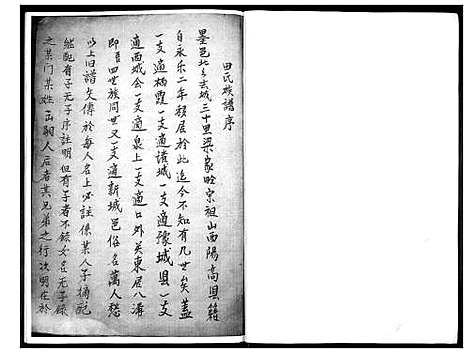 田氏族譜序
墨邑北乡去城三十里梁家疃宗祖山西陽高县籍
自永乐二年移居於此迄今不知有几世矣蓋
一支適栖霞一支適諸城一支適豫城县一支
適西城会一支適泉上一支適口外关東居八溝
即吾四世族同世又一支適新城邑俗名萬人愁
以上旧譜文傳於每人名上必註係某人子摘配
能配有子无子序註明但有子者不錄女名无子錄
之某門某姓出嗣人后者其兄弟之行次明在於